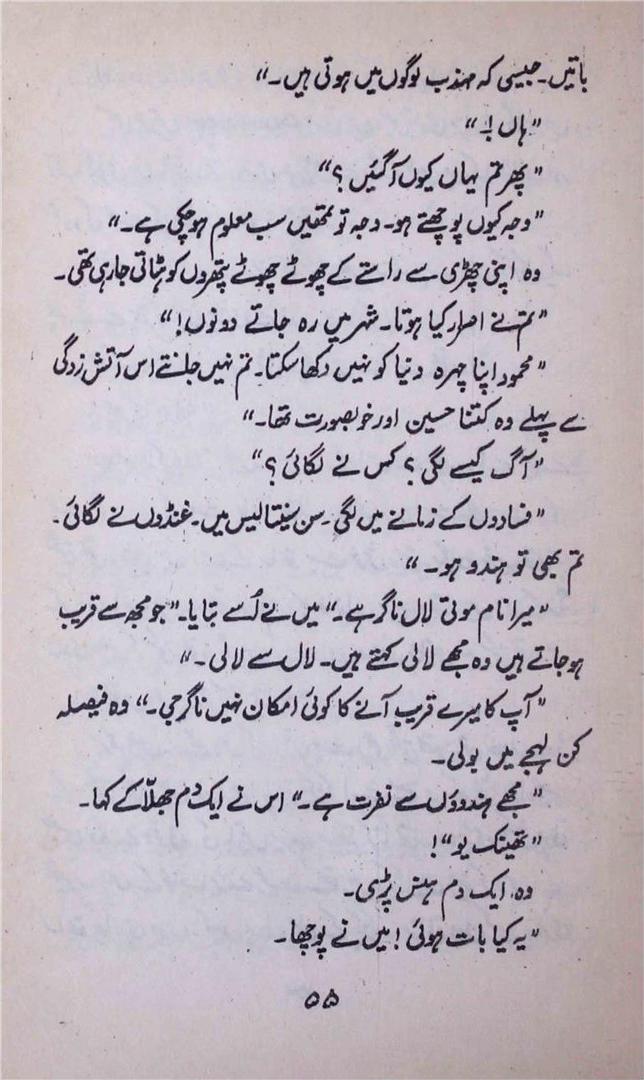 باتیں۔ جیسی کہ مہذب لوگوں میں ہوتی ہیں۔“
”ہاں!“
”پھر تم یہاں کیوں آگئیں؟“
”وجہ کیوں پوچھتے ہو۔ وجہ تو تمھیں سب معلوم ہوچکی ہے۔“
وہ اپنی چھڑی سے راستے کے چھوٹے چھوٹے پتھروں کو ہٹاتی جارہی تھی۔
”تم نے اصرار کیا ہوتا۔ شہر میں رہ جاتے دونوں!“
”محمود اپنا چہرہ دنیا کو نہیں دکھا سکتا۔ تم نہیں جانتے اس آتش زدگی
سے پہلے وہ کتنا حسین اور خوبصورت تھا۔“
”آگ کیسے لگی؟ کس نے لگائی؟“
”فسادوں کے زمانے میں لگی۔ سن سینتالیس میں۔ غنڈوں نے لگائی۔
تم بھی تو ہندو ہو۔“
”میرا نام موتی لال ناگر ہے۔“ میں نے اُسے بتایا۔ ”جو مجھ سے قریب
ہوجاتے ہیں وہ مجھے لالی کہتے ہیں۔ لال سے لالی۔“
”آپ کا میرے قریب آنے کا کوئی امکان نہیں ناگرجی۔“ وہ فیصلہ
کن لہجے میں بولی۔
”مجھے ہندوؤں سے نفرت ہے۔“ اس نے ایک دم جھلّا کے کہا۔
”تھینک یو“!
وہ ایک دم ہنس پڑی۔
”یہ کیا بات ہوئی! میں نے پوچھا۔
۵۵